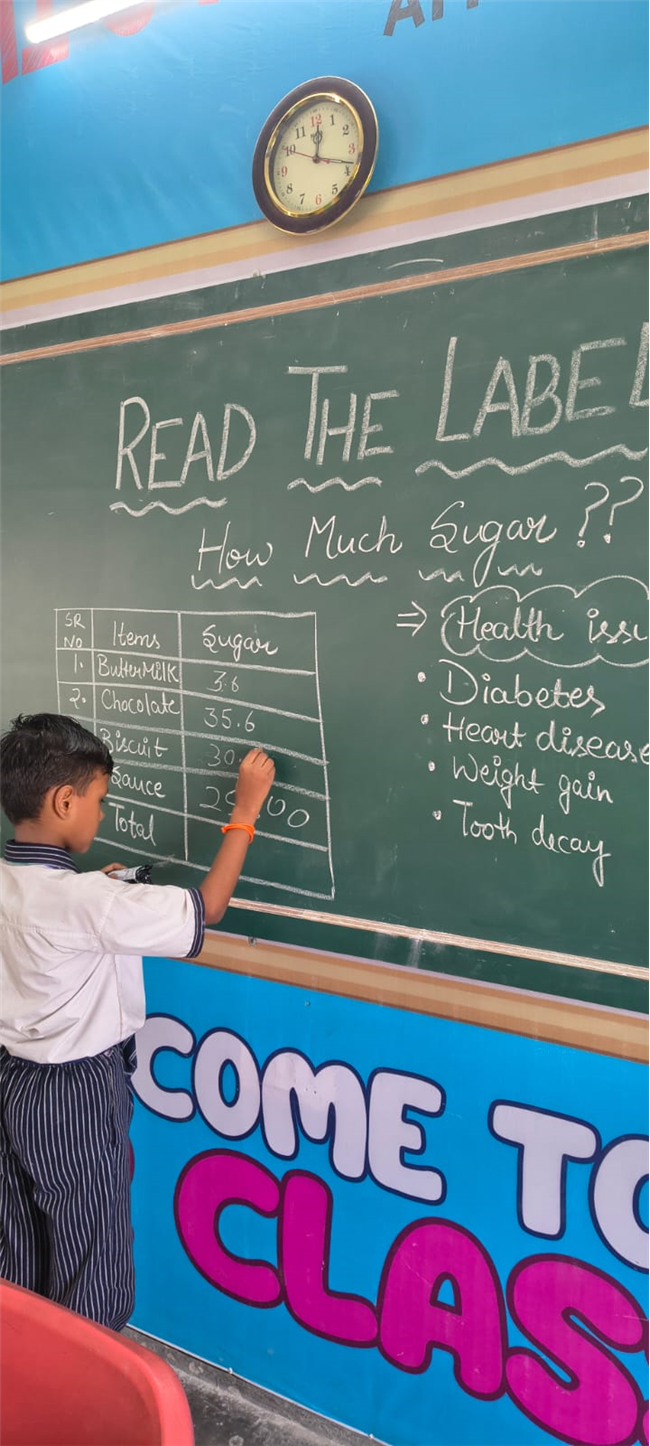 12 1 2 3 4 5 6 7 8 9 10 11
READ THE LABEL
How Much Sugar ??
SR NO Items Sugar
1. ButterMilk 3.6
2. Chocolate 35.6
Biscuit 30.
Sauce
Total
⇒ Health issu
• Diabetes
• Heart disease
• Weight gain
• Tooth decay
COME TO
CLASS